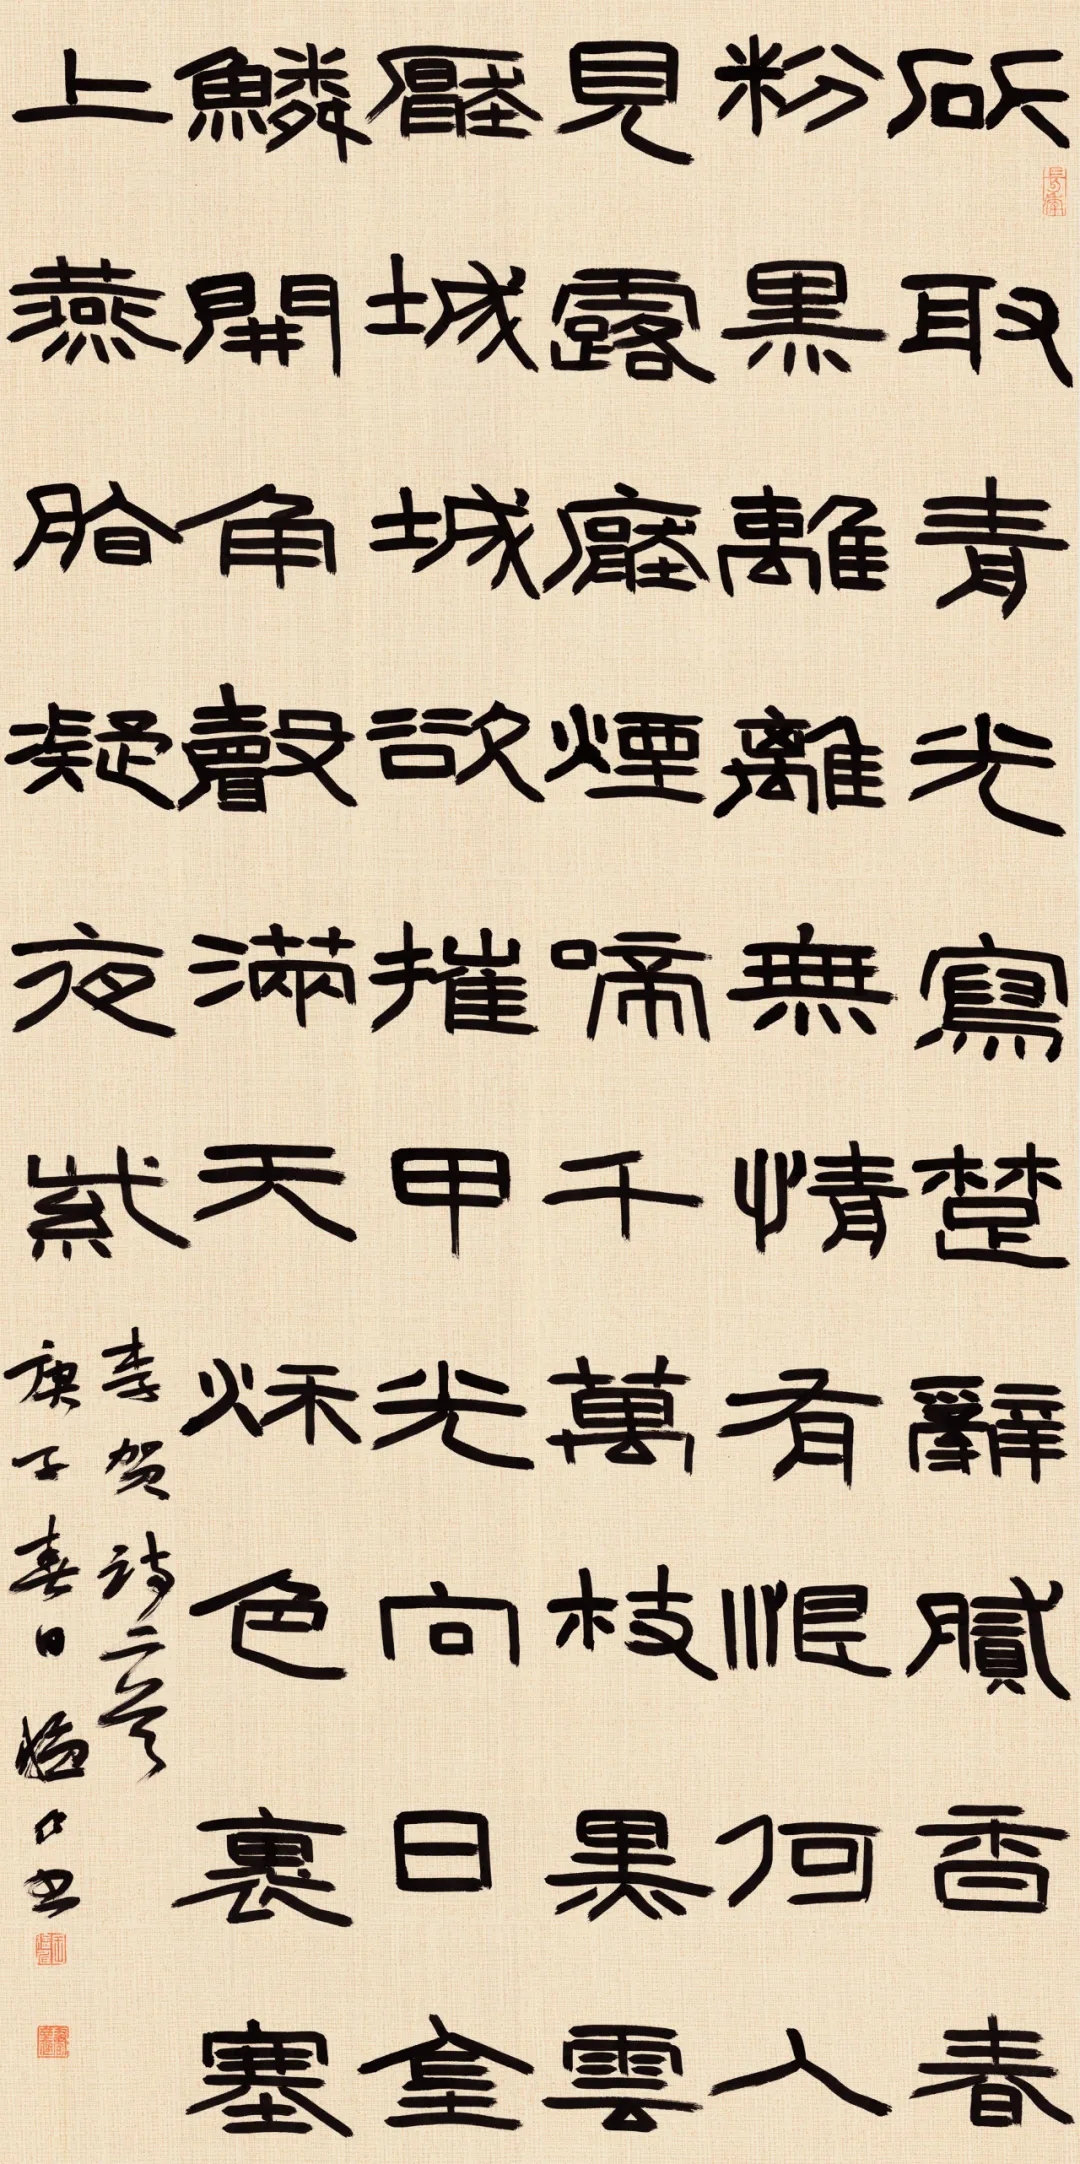 斫取青光寫楚辭膩香春
粉黑離離無情有恨何人
見露壓煙啼千萬枝黑雲
壓城城欲摧甲光向日金
鱗開角聲滿天秋色裏塞
上燕脂凝夜紫
李贺诗二首
庚子春日书